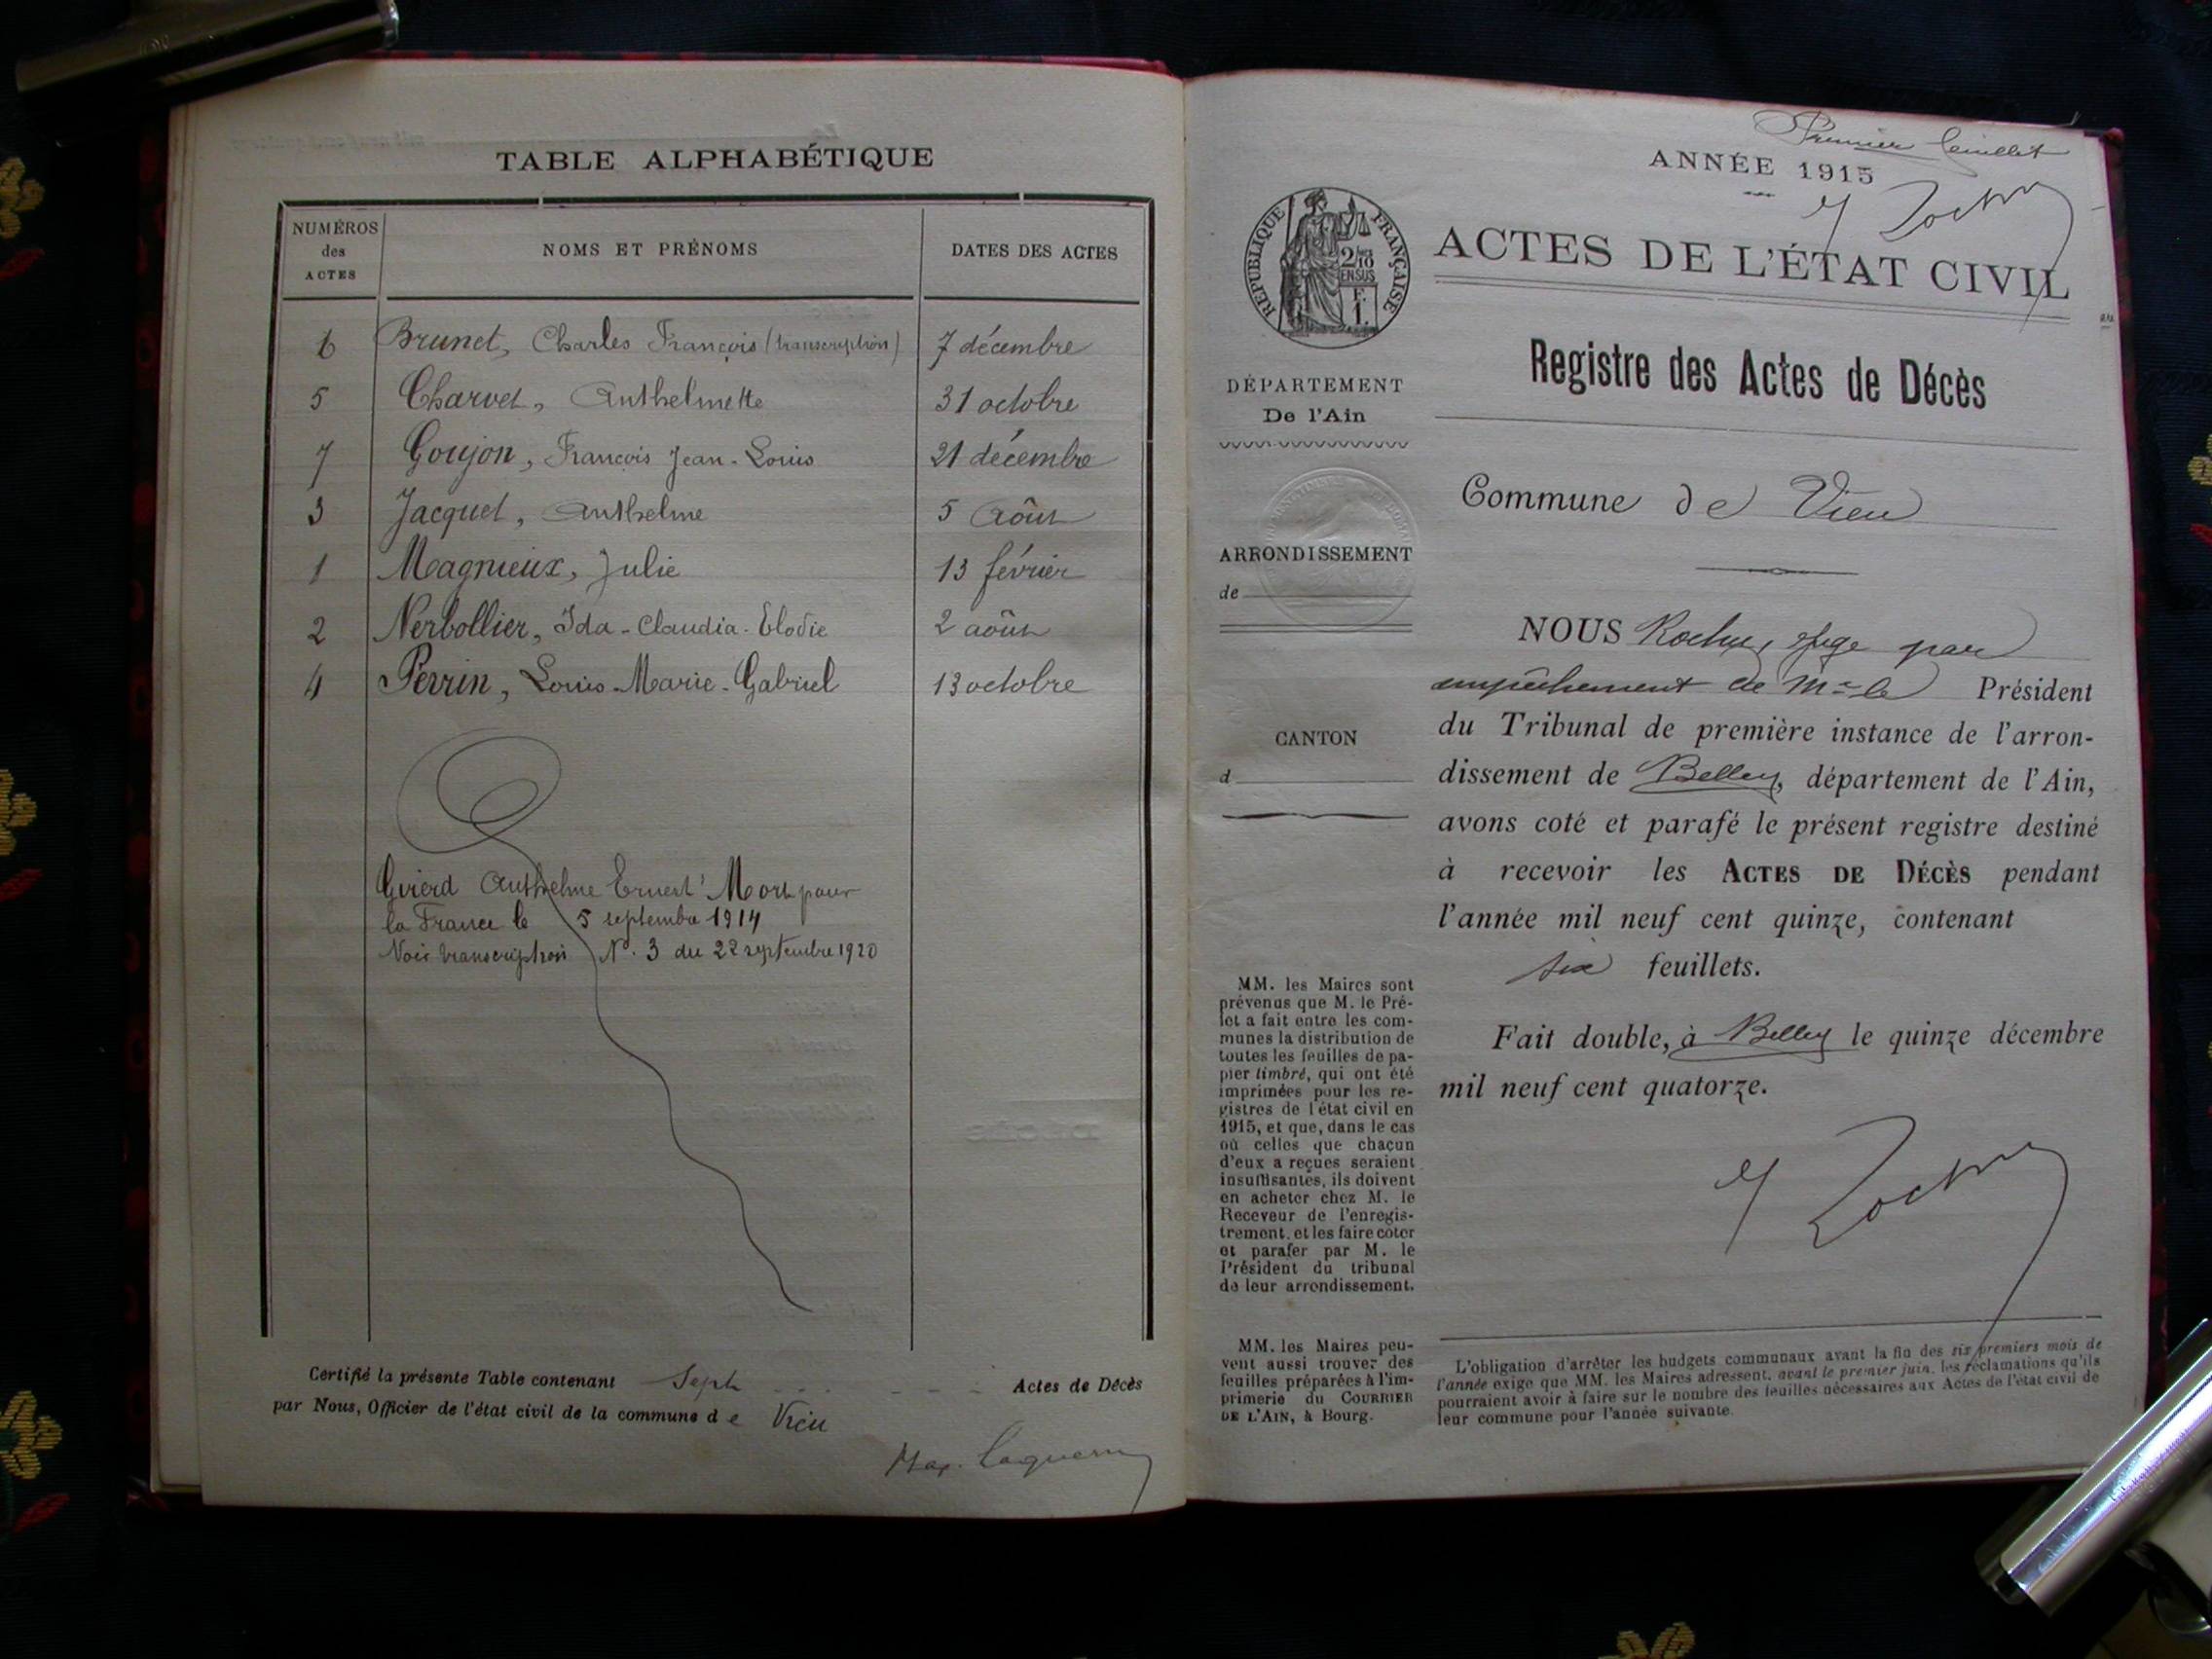 TABLE ALPHABÉTIQUE
NUMÉROS
des
ACTES
NOMS ET PRÉNOMS
DATES DES ACTES
6 Brunet, Charles François (transcription) 7 décembre
5 Charvet, Anthelmette 31 octobre
7 Goujon, François Jean-Louis 21 décembre
3 Jacquet, Anthelme 5 Août
1 Magnieux, Julie 13 février
2 Nerbollier, Ida-Claudia-Elodie 2 août
4 Perrin, Louis-Marie-Gabriel 13 octobre
Anthelme Ernest Mort pour
la France le 5 septembre 1914
Voir transcription N° 3 du 22 septembre 1920
Certifié la présente Table contenant Sept Actes de Décès
par Nous, Officier de l'état civil de la commune de Vieu
Premier feuillet
ANNÉE 1915
ACTES DE L'ÉTAT CIVIL
RÉPUBLIQUE FRANÇAISE
2/10
EN SUS
F.
1.
Registre des Actes de Décès
DÉPARTEMENT
De l'Ain
Commune de Vieu
ARRONDISSEMENT
de
CANTON
d
NOUS juge par
empêchement de Mr le Président
du Tribunal de première instance de l'arron-
dissement de Belley, département de l'Ain,
avons coté et parafé le présent registre destiné
à recevoir les ACTES DE DÉCÈS pendant
l'année mil neuf cent quinze, contenant
six feuillets.
Fait double, à Belley le quinze décembre
mil neuf cent quatorze.
MM. les Maires sont
prévenus que M. le Pré-
fet a fait entre les com-
munes la distribution de
toutes les feuilles de pa-
pier timbré, qui ont été
imprimées pour les re-
gistres de l'état civil en
1915, et que, dans le cas
où celles que chacun
d'eux a reçues seraient
insuffisantes, ils doivent
en acheter chez M. le
Receveur de l'enregis-
trement, et les faire coter
et parafer par M. le
Président du tribunal
de leur arrondissement.
MM. les Maires peu-
vent aussi trouver des
feuilles préparées à l'im-
primerie du COURRIER
DE L'AIN, à Bourg.
L'obligation d'arrêter les budgets communaux avant la fin des six premiers mois de
l'année exige que MM. les Maires adressent, avant le premier juin, les réclamations qu'ils
pourraient avoir à faire sur le nombre des feuilles nécessaires aux Actes de l'état civil de
leur commune pour l'année suivante.